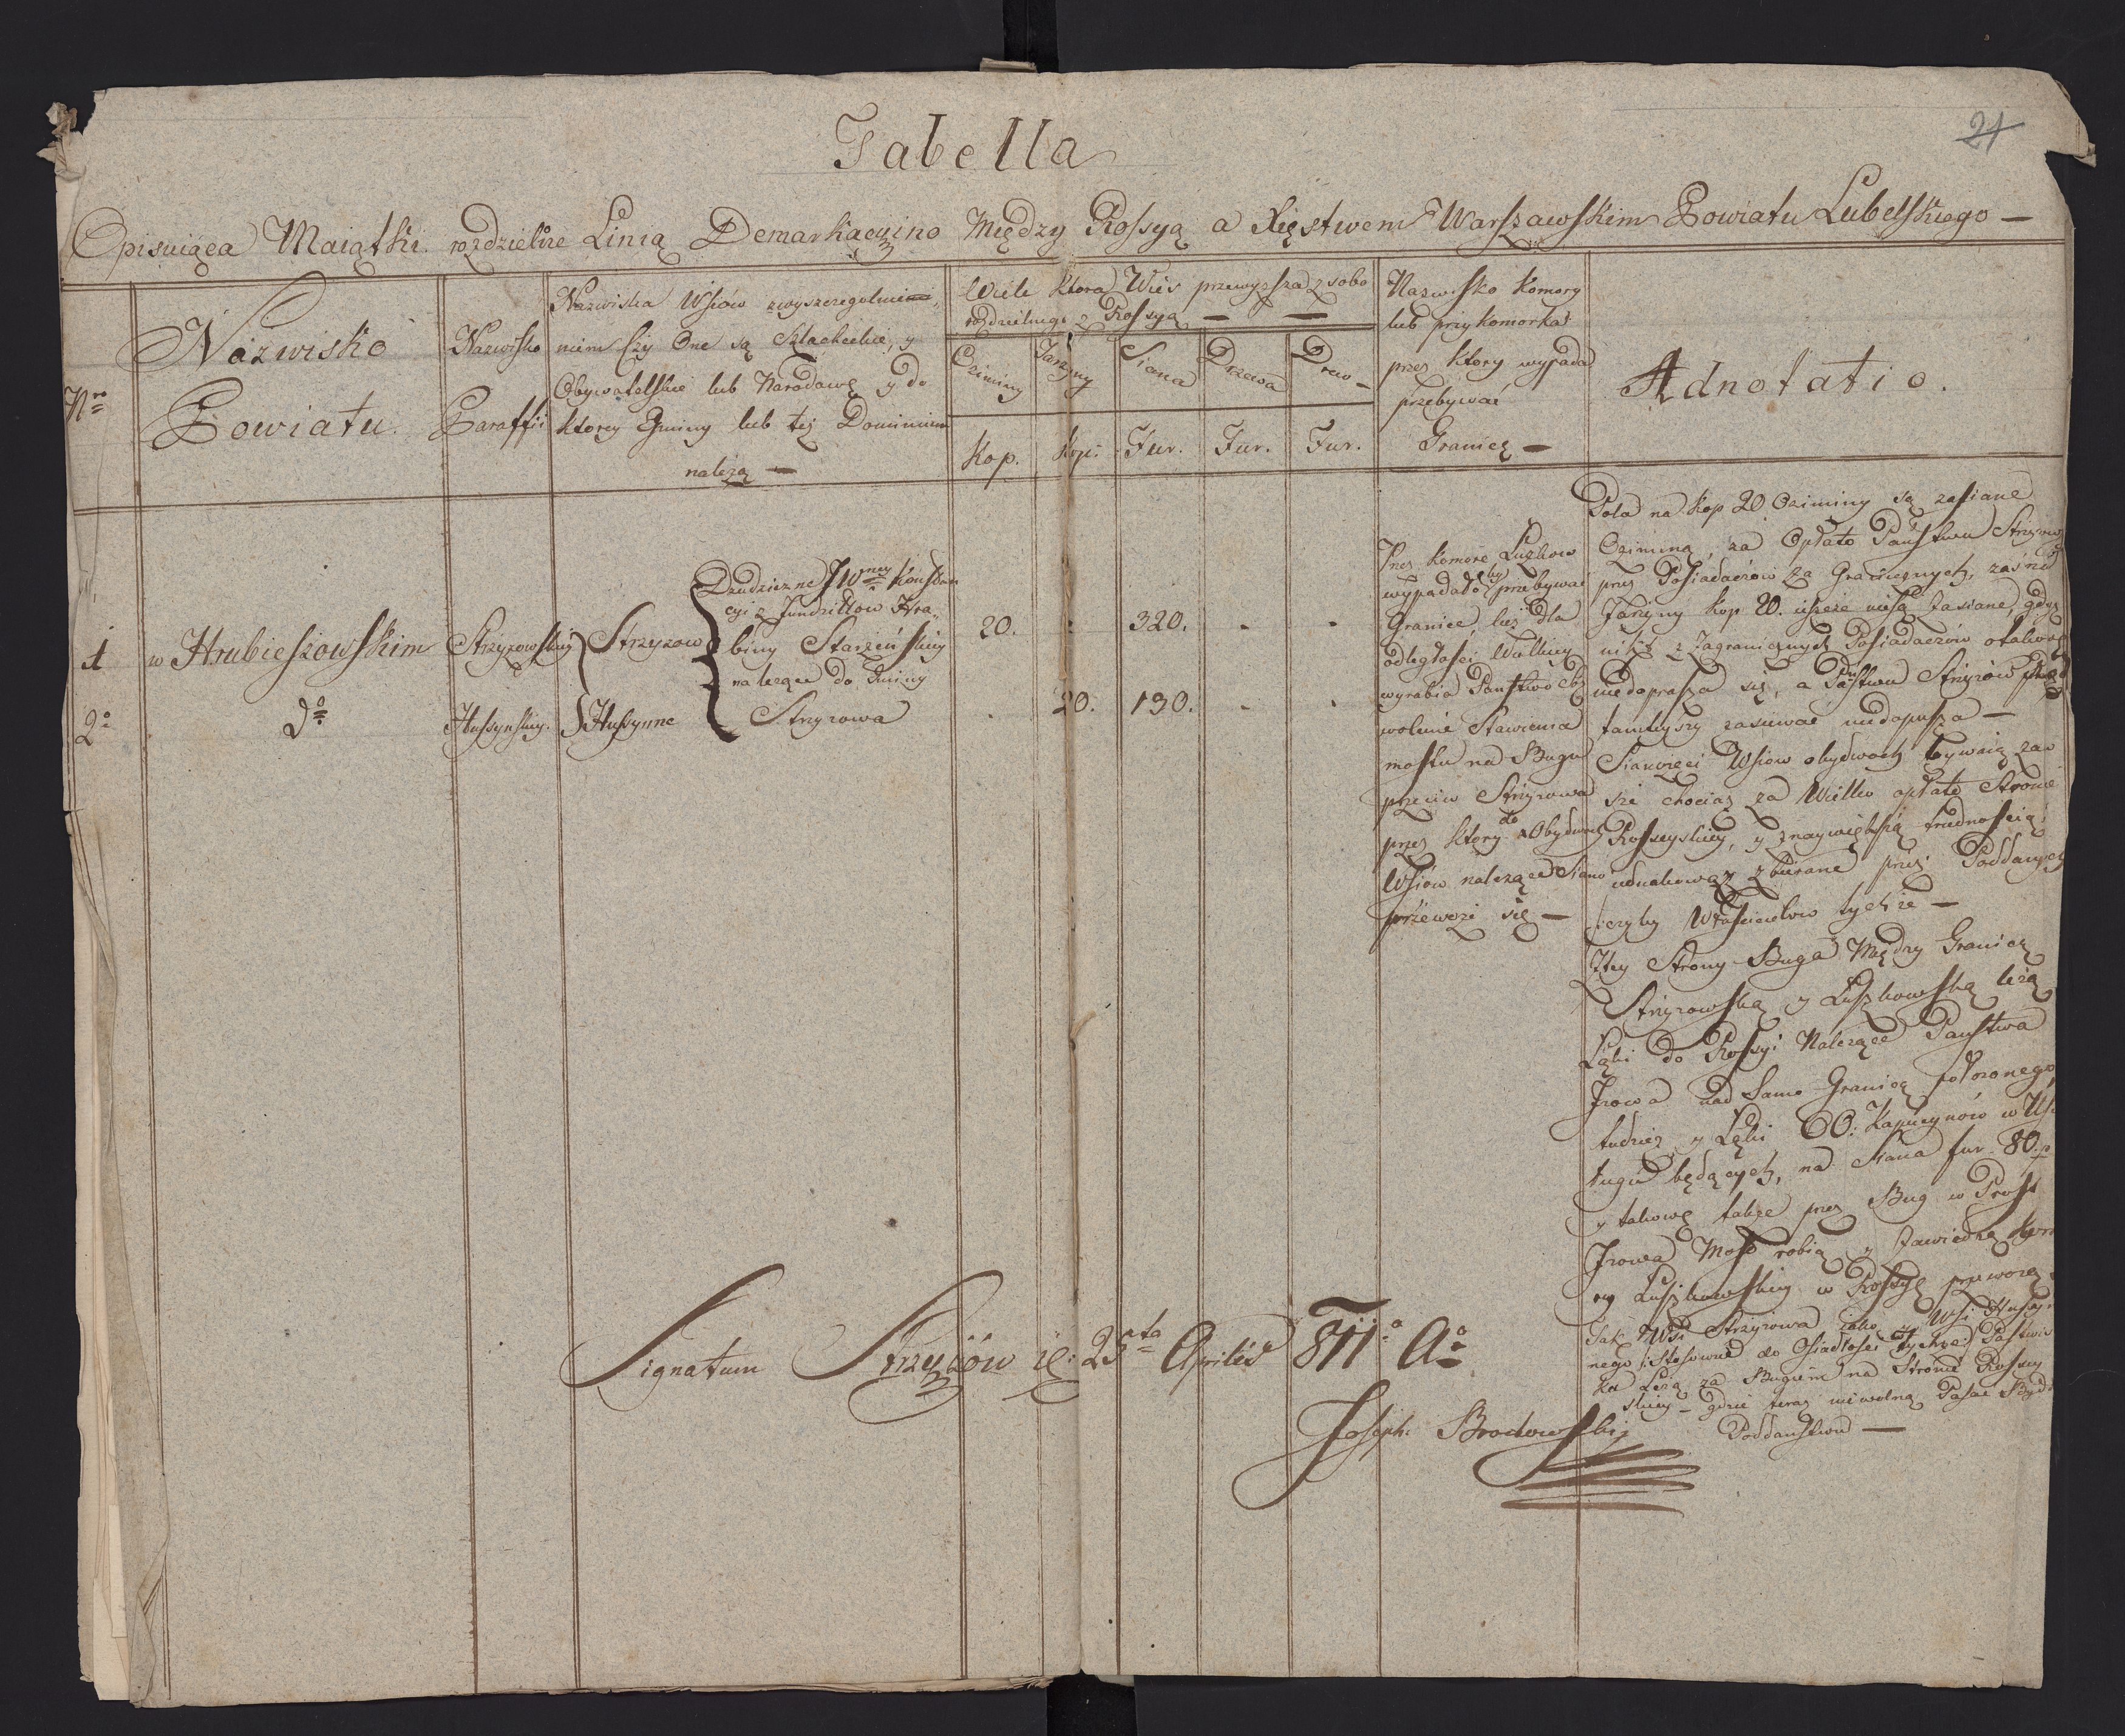 21
Tabella
Opisuiąca Maiątki rozdzielne Linią Demarkacyino Między Rossyą a Xięstwem Warszawskim Powiatu Lubelskiego —
Nro
Nazwisko
Powiatu.
Nazwisko
Paraffii
Nazwiska Wsiów zwyszczegulnie
niem Czy One są Szlacheckie, y
Obywatelskie lub Narodowe y do
ktorey Gminy lub tej Dominium
nalezą —
Wiele ktora Wieś przewyzsza z sobo
rozdzielnego z Rossyą — —
Oziminy
Jarzyny
Siana
Drzewa
Drew —
Kop.
Kop:
Fur.
Fur.
Fur.
Nazwisko Komory
lub przykomorka
przez ktory wypada
przebywać
Granicę —
Adnotatio.
1
w Hrubieszowskim
Strzyzowskiey
Strzyzow
Dziedziczne JWney Konstan
cyi z Hra-
biny Starzeńskiey
nalezące do Gminy
Strzyzowa
20.
320.
2o
do
Hussynskiey.
Hussynne
20.
190.
Przez Komorę Luzkow
wypadało by przebywać
Granice, lecz dla
odległosci Wielkiey
wyrabia Panstwo
wolenie Stawienia
mostu na Bugu
przeciw Strzyzowa
przez ktory do Obydwoch
Wsiów nalezące Siano
przewozi się —
Pola na Kop 20 Oziminy są zasiane
Oziminą, za Opłato Państwu Strzyzow
przez Posiadaczów za Granicznych, zaś na
Jarzyny Kop 20. ieszcze niesą Zasiane, gdyz
nikt z Zagranicznych Posiadaczów otakowe
niedoprasza się, a Państwu Strzyzow
tamteyszy zasiewać niedopuszcza —
Sianozęci Wsiow obydwoch bywaią zaw
sze chociaz za Wielko opłato Stronie
Rosseyskiey, y znaywiększą trudnoscią
iednakowoz zbierane przez Poddanych
iczyby Włascicielow tychze —
Ztey Strony Buga Między Granicą
Strzyzowską y Luszkowską lezą
Łąki do Rossyi Nalezące Panstwa
Jzowa nad Samo Granicą połozonego
tudziez y Łąki OO: Kapucynów w Uści
ługu będących, na Siana fur. 80.
y takowe także przez Bug w Prost
Jzowa Most robią y Zawiedzą Komo
ry Luszkowskiey w Rossyę przewozą
Jak Wsi Strzyzowa iako y Wsi Hussyn
nego Stosowne do Osiadłosci tychze Pastwis
ka Lezą za Bugiem na Stronie Rossey
skiey — gdzie teraz niewolno Pasać Bydł
Poddaństwu —
Signatum Strzyzów d: 25ta Aprilis 811o Ao
Joseph Brodowski